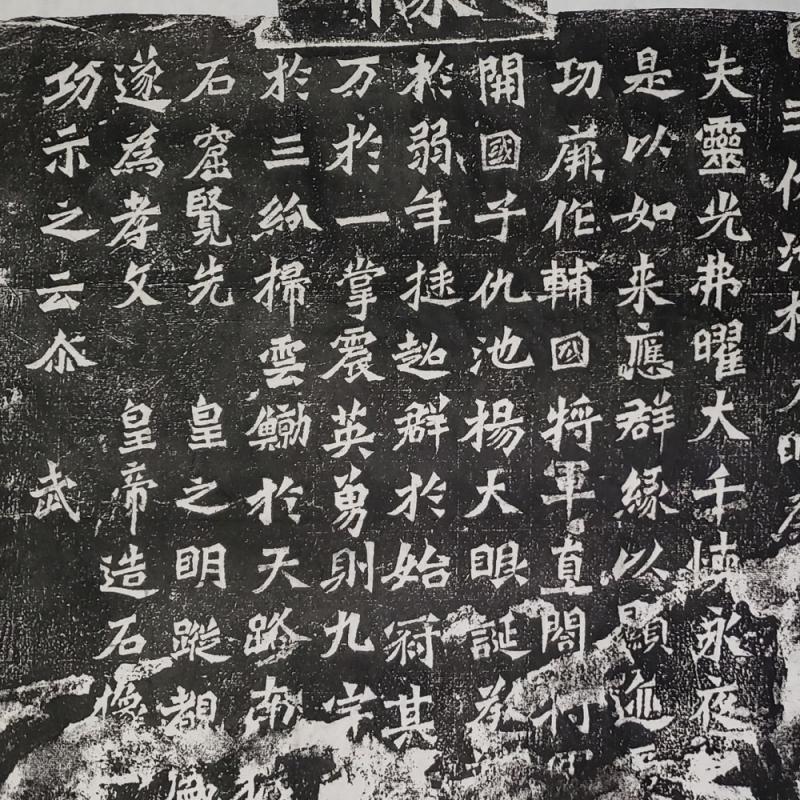 夫靈光弗曜大千懷永夜
是以如来應群緣以顯迹
功厥作輔國將軍直閤
開國子仇池楊大眼誕承
於弱年挺超群於始冠其
万於一掌震英勇則九宇
於三紛掃雲鯨於天路南
石窟覽先 皇之明蹤覩
遂為孝文 皇帝造石像一
功示之云尒 武